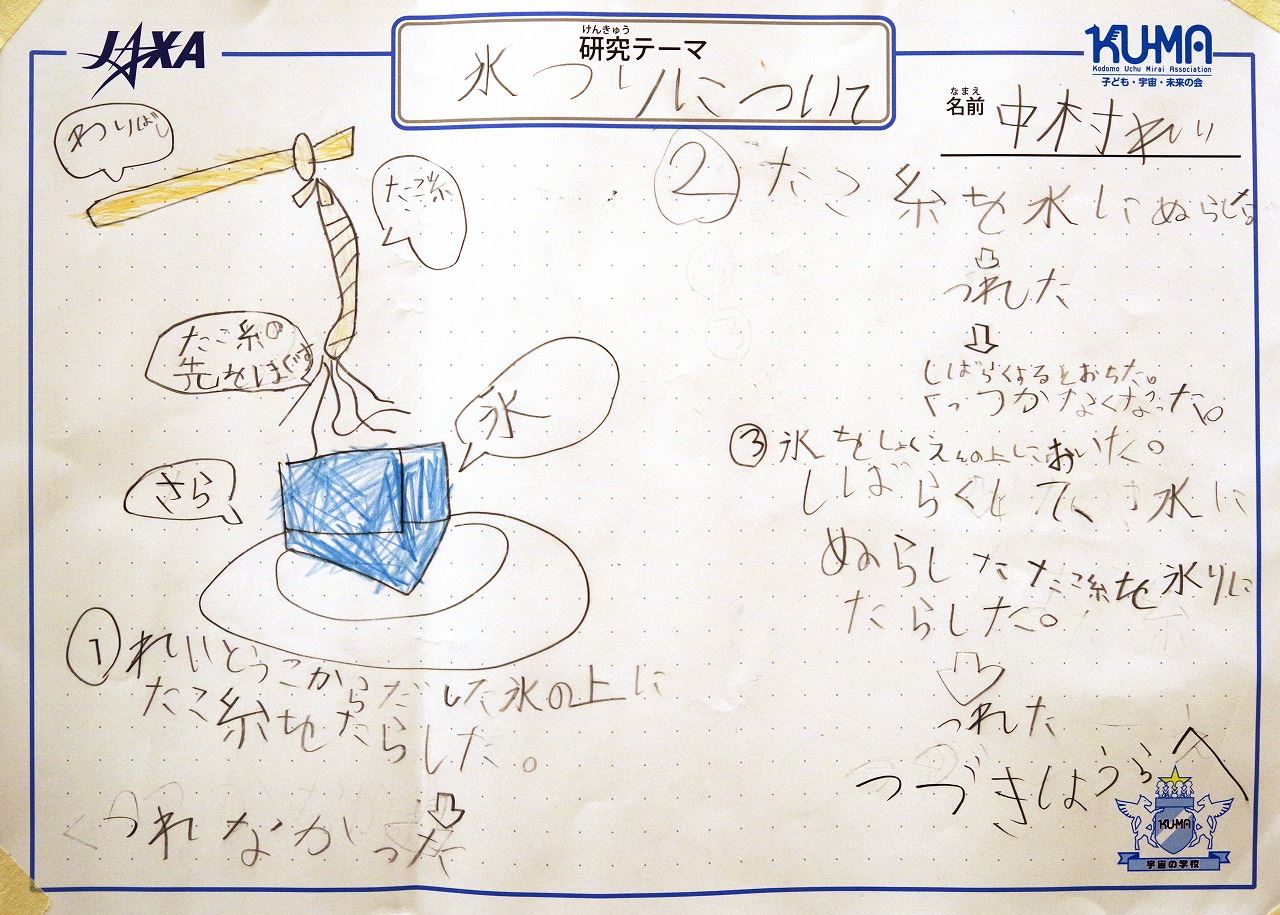 JAXA
けんきゅう
研究テーマ
氷つりについて
KU-MA
Kodomo Uchu Mirai Association
子ども・宇宙・未来の会
なまえ
名前
中村れいり
わりばし
たこ糸
たこ糸の
先をほぐす
氷
さら
①れいとうこから
だした氷の上に
たこ糸をたらした。
⇩
つれなかった
②たこ糸を水にぬらした。
⇩
つれた
⇩
しばらくするとおちた。
くっつかなくなった。
③氷をしょくえんの上においた。
しばらくして水に
ぬらしたたこ糸を氷りに
たらした。
⇩
つれた
つづきはうらへ
KU-MA
宇宙の学校